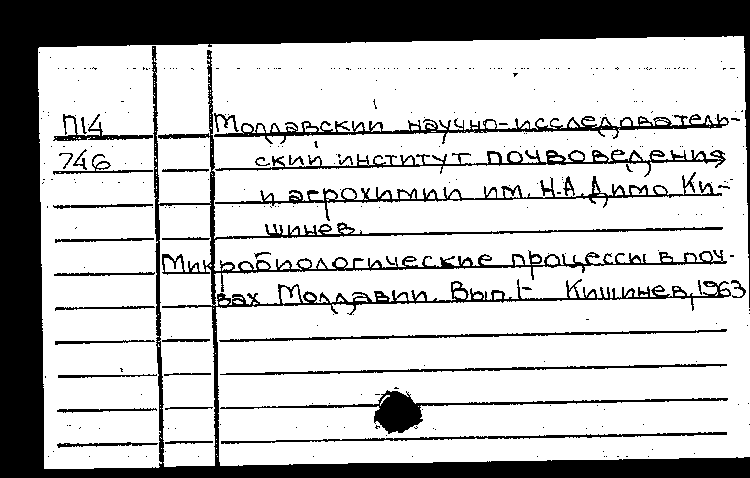 П14 Молдавский научно-исследователь-
746 ский институт почвоведения
и агрохимии им. Н.А. Димо. Ки-
шинев.
Микробиологические процессы в поч-
вах Молдавии. Вып. 1- Кишинев, 1963